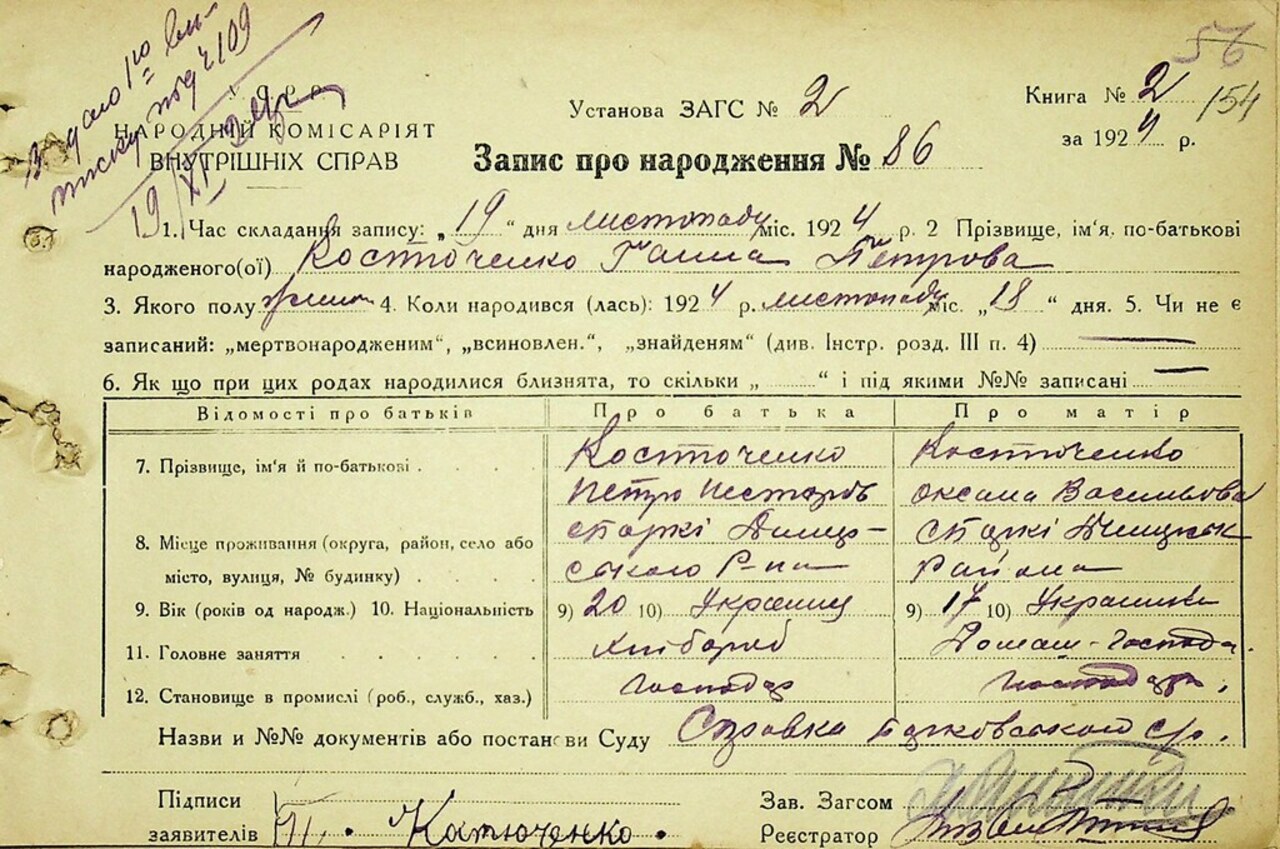 Видано 1ю ви-
писку під ч 109
19/XI
У.С.Р.Р.
НАРОДНІЙ КОМІСАРІЯТ
ВНУТРІШНІХ СПРАВ
Установа ЗАГС № 2
Книга № 2
56
154
за 1924 р.
Запис про народження № 86
1. Час складання запису: „19“ дня листопаду міс. 1924 р. 2 Прізвище, ім'я, по-батькові
народженого(ої) Костюченко Ганна Петрова
3. Якого полу жіноч 4. Коли народився (лась): 1924 р. листопаду міс. „18“ дня. 5. Чи не є
записаний: „мертвонародженим“, „всиновлен.“, „знайденям“ (див. Інстр. розд. III п. 4) —
6. Як що при цих родах народилися близнята, то скільки „ “ і під якими №№ записані —
Відомості про батьків Про батька Про матір
7. Прізвище, ім'я й по-батькові . . . . Костюченко Костюченко
Петро Несторов Оксана Васильова
8. Місце проживання (округа, район, село або
місто, вулиця, № будинку) . . . .
ського Р-на района
9. Вік (років од народж.) 10. Національність 9) 20 10) Украинц 9) 17 10) Украинка
11. Головне заняття . . . . . Хлібороб Домаш-господа.
12. Становище в промислі (роб., служб., хаз.) господар господар.
Назви и №№ документів або постанови Суду Справка с/р.
Підписи
заявителів П. Катюченко.
Зав. Загсом
Реєстратор